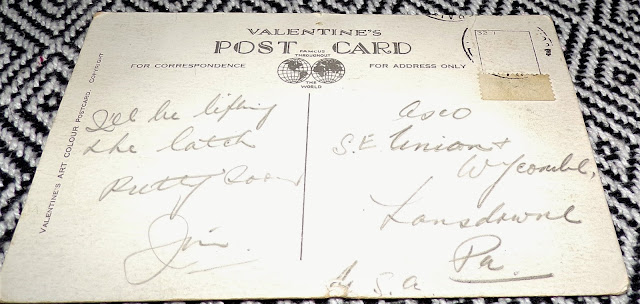 VALENTINE'S
POST CARD
FAMOUS
THROUGHOUT
THE
WORLD
FOR CORRESPONDENCE
FOR ADDRESS ONLY
VALENTINE'S ART COLOUR POSTCARD. COPYRIGHT
I'll be lifting
the latch
Pretty Soon
Jim
asco
S.E. Union &
Wycombe,
Lansdowne
Pa
U.S.A